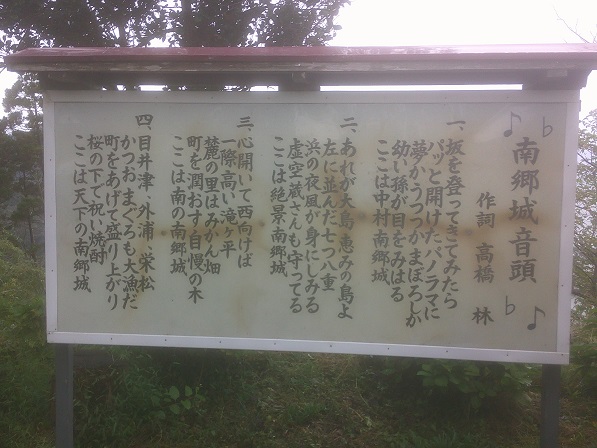 南郷城音頭
作詞 高橋 林
一、坂を登ってきてみたら
パッと開けたパノラマに
夢かうつつかまぼろしか
幼い孫が目をみはる
ここは中村南郷城
二、あれが大島恵みの島よ
左に並んだ七つ八重
浜の夜風が身にしみる
虚空蔵さんも守ってる
ここは絶景南郷城
三、心開いて西向けば
一際高い滝ヶ平
麓の里はみかん畑
町を潤おす自慢の木
ここは南の南郷城
四、目井津、外浦、栄松
かつお まぐろも大漁だ
町をあげて盛り上がり
桜の下で祝い焼酎
ここは天下の南郷城